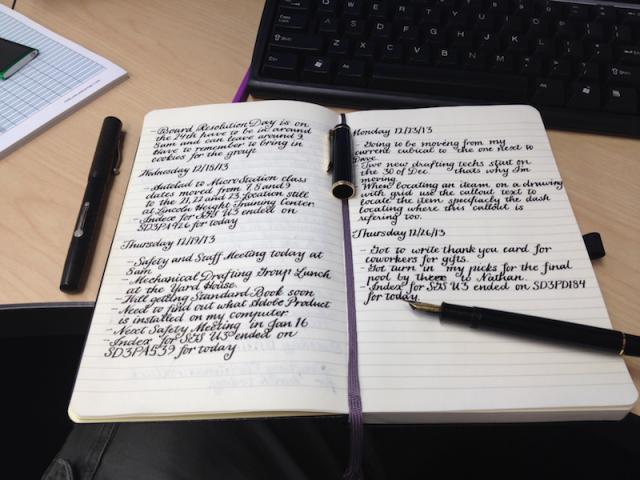 -Board Resolution Day is on
the 24th have to be in around
8am and can leave around 2
have to remember to bring in
cookies for the group
Wednesday 12/18/13
-Autocad to MicroStation class
dates moved from 7, 8 and 9
to the 21, 22 and 23, location still
at Lincoln Heights Training Center
-Index for SGS U3 ended on
SD3PA926 for today
Thursday 12/19/13
-Safety and Staff Meeting today at
8am
-Mechanical Drafting Group Lunch
at the Yard House
-Will getting Standard Book soon
-Need to find out what Adobe Product
is installed on my computer
-Next Safety Meeting in Jan 16
-Index for SGS U3 ended on
SD3PA539 for today
Monday 12/23/13
-Going to be moving from my
current cubical to the one next to
Dave
-Two new drafting techs start on
the 30 of Dec. thats why I'm
moving
-When locating an iteam on a drawing
with grid use the callout text to
locate the item specifiacly the dash
locating where this callout is
refering too.
Thursday 12/26/13
-Got to write thank you card for
coworkers for gifts.
-Got turn in my picks for the final
pool by there to Nathan.
-Index for SGS U3 ended on SD3PD184
for today.